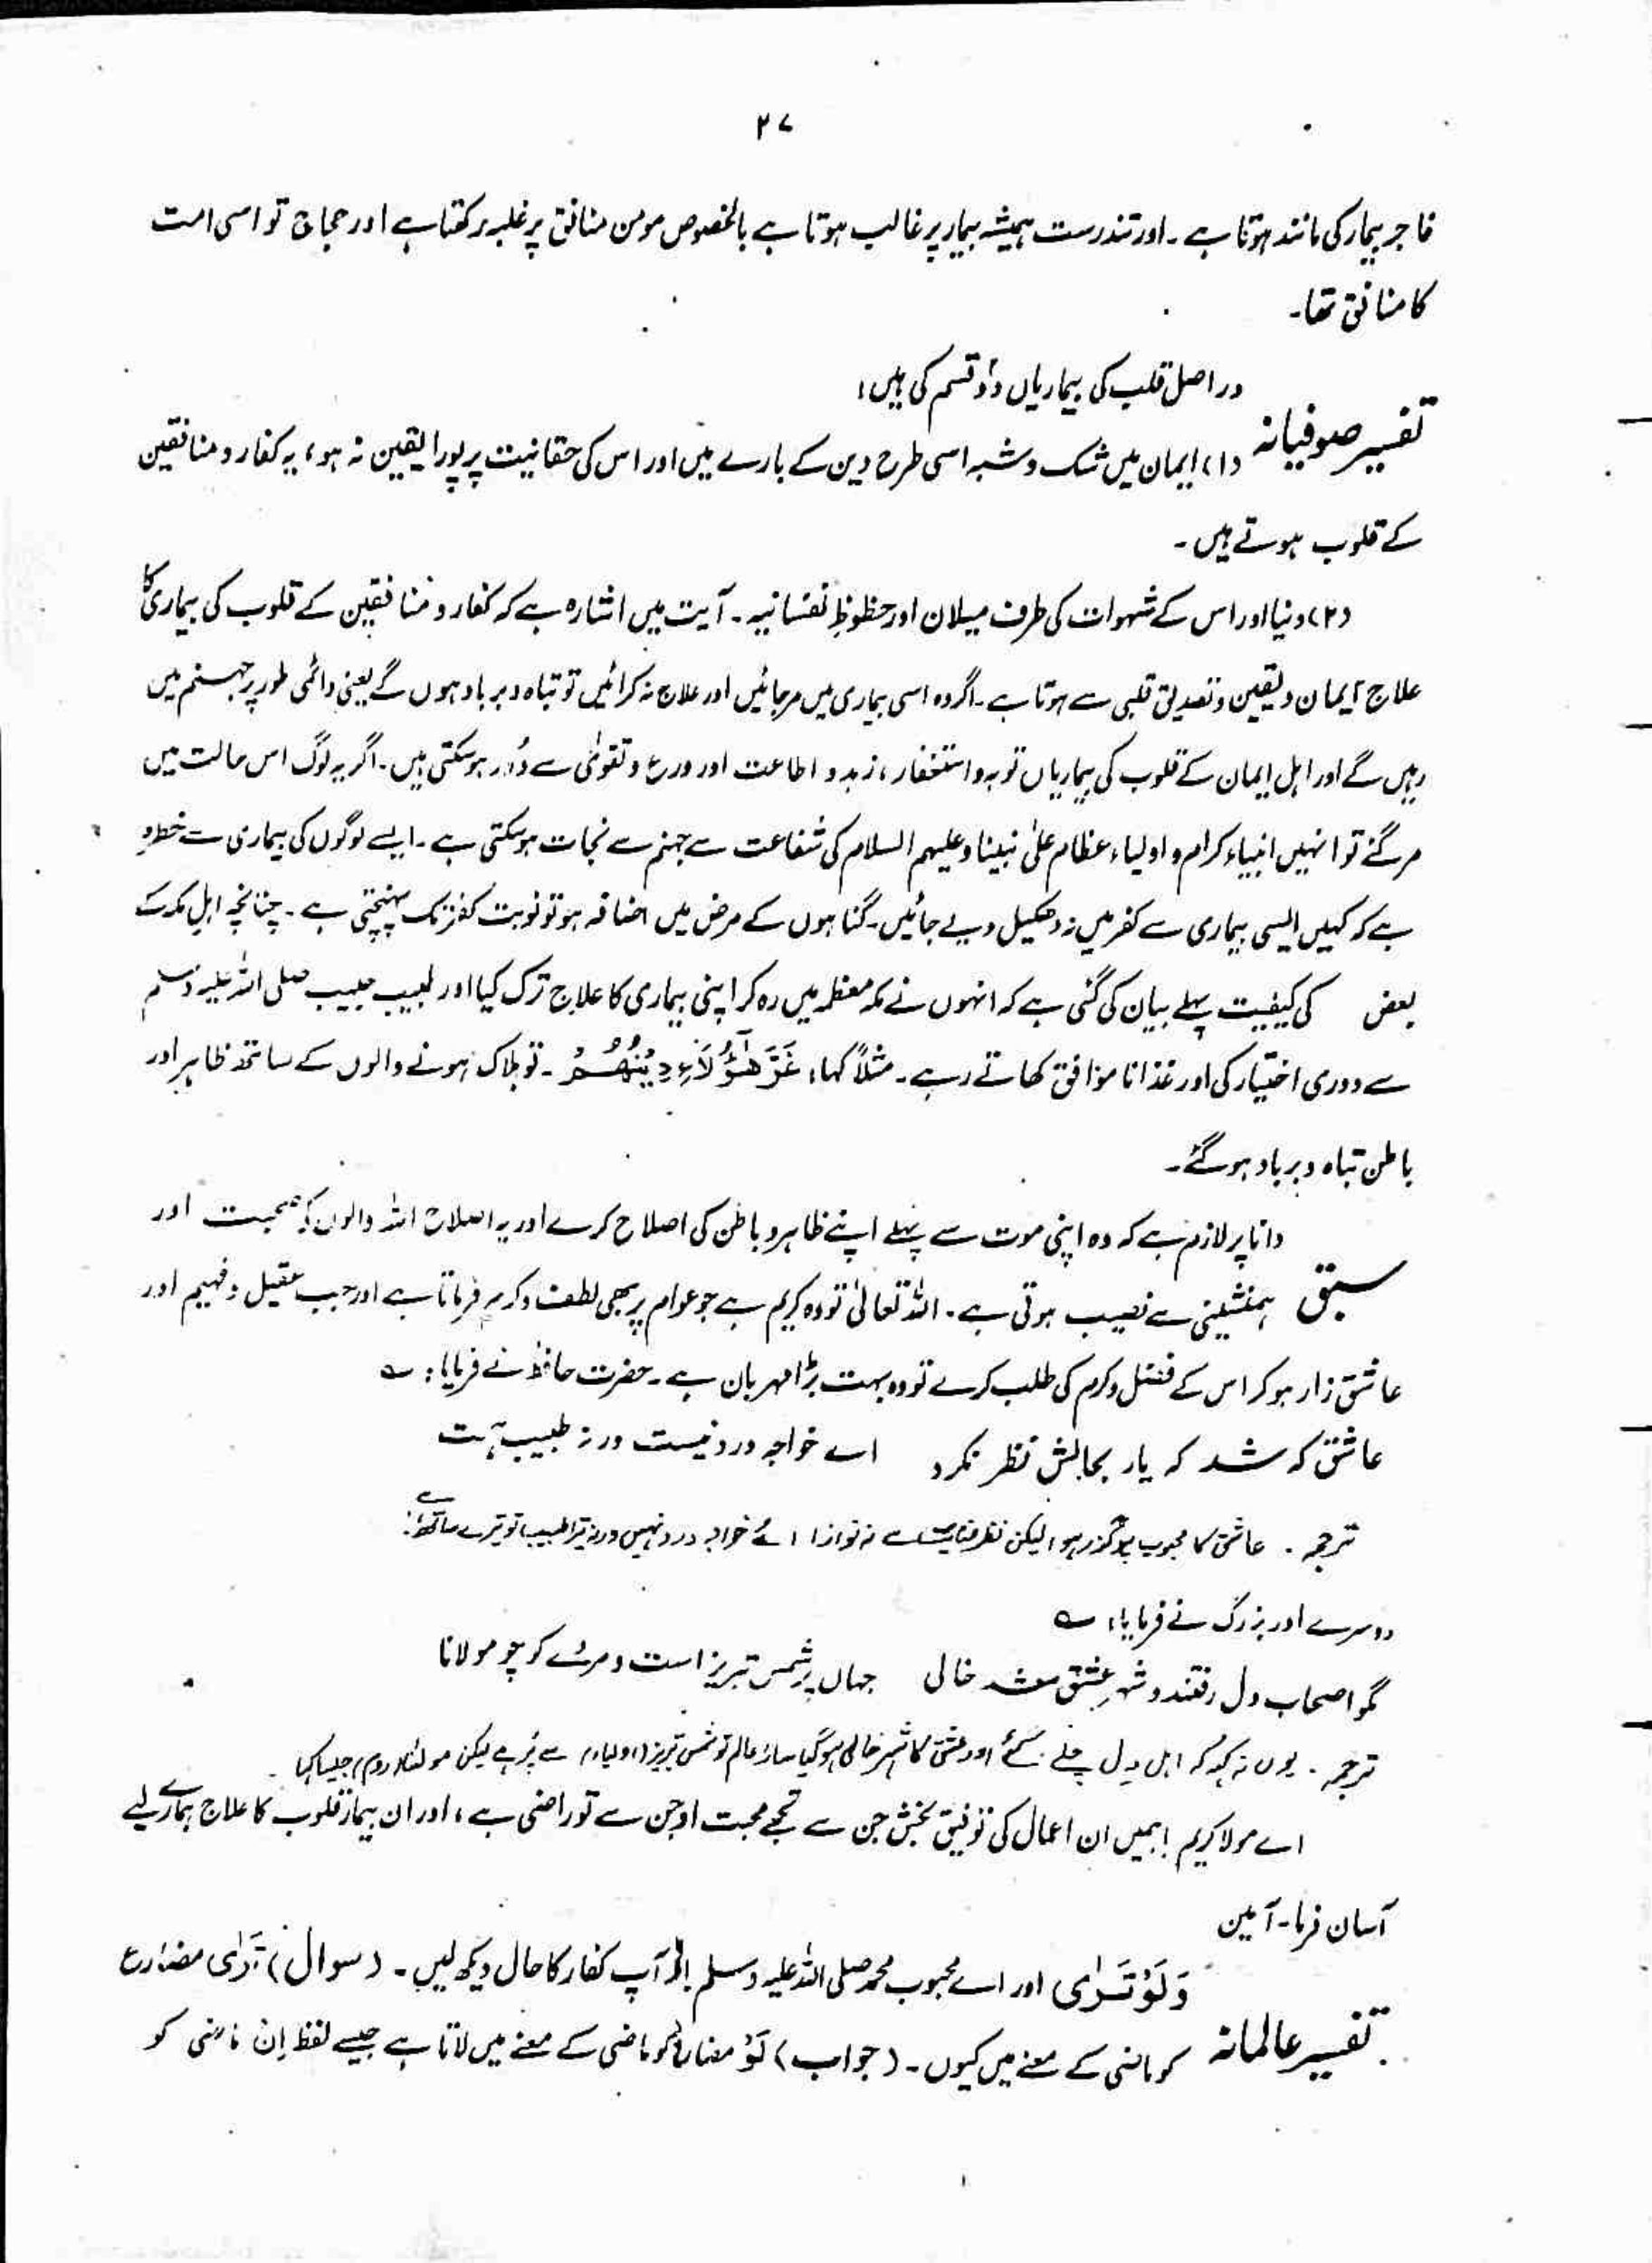 ۲۷
فاجر بیمار کی مانند ہوتا ہے۔ اور تندرست ہمیشہ بیمار پر غالب ہوتا ہے بالخصوص مومن منافق پر غلبہ رکھتا ہے اور حجاج تو اسی امت
کا منافق تھا۔
دراصل قلب کی بیماریاں دو قسم کی ہیں:
تفسیر صوفیانہ (۱) ایمان میں شک و شبہ اسی طرح دین کے بارے میں اور اس کی حقانیت پر پورا یقین نہ ہو، یہ کفار و منافقین
کے قلوب ہوتے ہیں۔
(۲) دنیا اور اس کے شہوات کی طرف میلان اور حظوظِ نفسانیہ۔ آیت میں اشارہ ہے کہ کفار و منافقین کے قلوب کی بیماری کا
علاج ایمان و یقین و تصدیق قلبی سے ہوتا ہے۔ اگر وہ اسی بیماری میں مرجائیں اور علاج نہ کرائیں تو تباہ و برباد ہوں گے یعنی دائمی طور پر جہنم میں
رہیں گے اور اہل ایمان کے قلوب کی بیماریاں توبہ و استغفار، زہد و اطاعت اور ورع و تقویٰ سے دُور ہوسکتی ہیں۔ اگر یہ لوگ اس حالت میں
مرگئے تو انہیں انبیاء کرام و اولیاء عظام علیٰ نبینا وعلیہم السلام کی شفاعت سے جہنم سے نجات ہوسکتی ہے۔ ایسے لوگوں کی بیماری سے خطرہ
ہے کہ کہیں ایسی بیماری سے کفر میں نہ دھکیل دیے جائیں۔ گناہوں کے مرض میں اضافہ ہو تو نوبت کفر تک پہنچتی ہے۔ چنانچہ اہل مکہ کے
بعض کی کیفیت پہلے بیان کی گئی ہے کہ انہوں نے مکہ معظمہ میں رہ کر اپنی بیماری کا علاج ترک کیا اور طبیب حبیب صلی اللہ علیہ وسلم
سے دوری اختیار کی اور غذا ناموافق کھاتے رہے۔ مثلاً کہا: غَرَّ هٰٓؤُلَآءِ دِيْنُهُمْ۔ تو ہلاک ہونے والوں کے ساتھ ظاہر اور
باطن تباہ و برباد ہوگئے۔
دانا پر لازم ہے کہ وہ اپنی موت سے پہلے اپنے ظاہر و باطن کی اصلاح کرے اور یہ اصلاح اللہ والوں کی صحبت اور
سبق ہمنشینی سے نصیب ہوتی ہے۔ اللہ تعالیٰ تو وہ کریم ہے جو عوام پر بھی لطف و کرم فرماتا ہے اور جب عقیل و فہیم اور
عاشق زار ہوکر اس کے فضل و کرم کی طلب کرے تو وہ بہت بڑا مہربان ہے۔ حضرت حافظ نے فرمایا: ؎
عاشق کہ شد کہ یار بحالش نظر نکرد اے خواجہ درد نیست ورنہ طبیب ہست
ترجمہ۔ عاشق کا محبوب پر گزر ہو لیکن نظر عنایت سے نہ نوازا اے خواجہ درد نہیں ورنہ تیرا طبیب تو تیرے ساتھ ہے
دوسرے اور بزرگ نے فرمایا: ؎
مگو اصحاب دل رفتند و شہر عشق شد خالی جہاں پر شمس تبریز است و مردے کو چو مولانا
ترجمہ۔ یوں نہ کہو کہ اہل دل چلے گئے اور عشق کا شہر خالی ہوگیا سارا عالم تو شمس تبریز (اولیاء) سے پُر ہے لیکن مولانا (روم) جیسا کہا
اے مولا کریم! ہمیں ان اعمال کی توفیق بخش جن سے تجھے محبت اور جن سے تو راضی ہے، اور ان بیمار قلوب کا علاج ہمارے لیے
آسان فرما۔ آمین
وَلَوْ تَرٰى اور اے محبوب محمد صلی اللہ علیہ وسلم اگر آپ کفار کا حال دیکھ لیں۔ (سوال) تَرٰی مضارع
تفسیر عالمانہ کو ماضی کے معنے میں کیوں۔ (جواب) لَوْ مضارع کو ماضی کے معنے میں لاتا ہے جیسے لفظ اِنْ ماضی کو